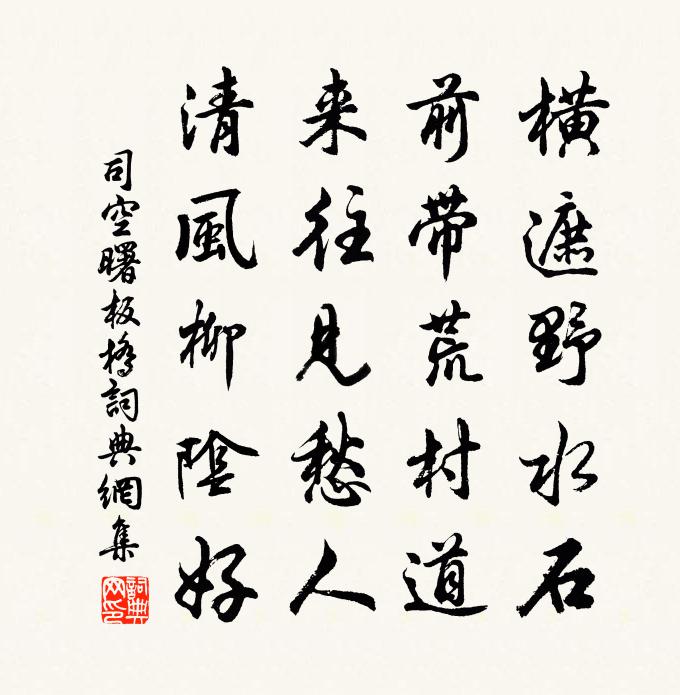 橫遮野水石
前帶荒村道
来往見愁人
清風柳陰好
司空曙板橋詞典網集
詞典網印